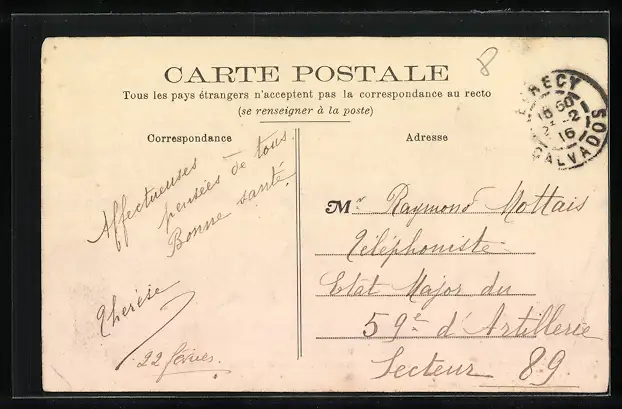 8
CARTE POSTALE
Tous les pays étrangers n'acceptent pas la correspondance au recto
(se renseigner à la poste)
Correspondance
Affectueuses
pensées de tous.
Bonne santé.
Thérèse
22 février.
Adresse
Mr Raymond Mottais
Téléphoniste
Etat Major du
59e d'Artillerie
Secteur 89
EVRECY
CALVADOS
16